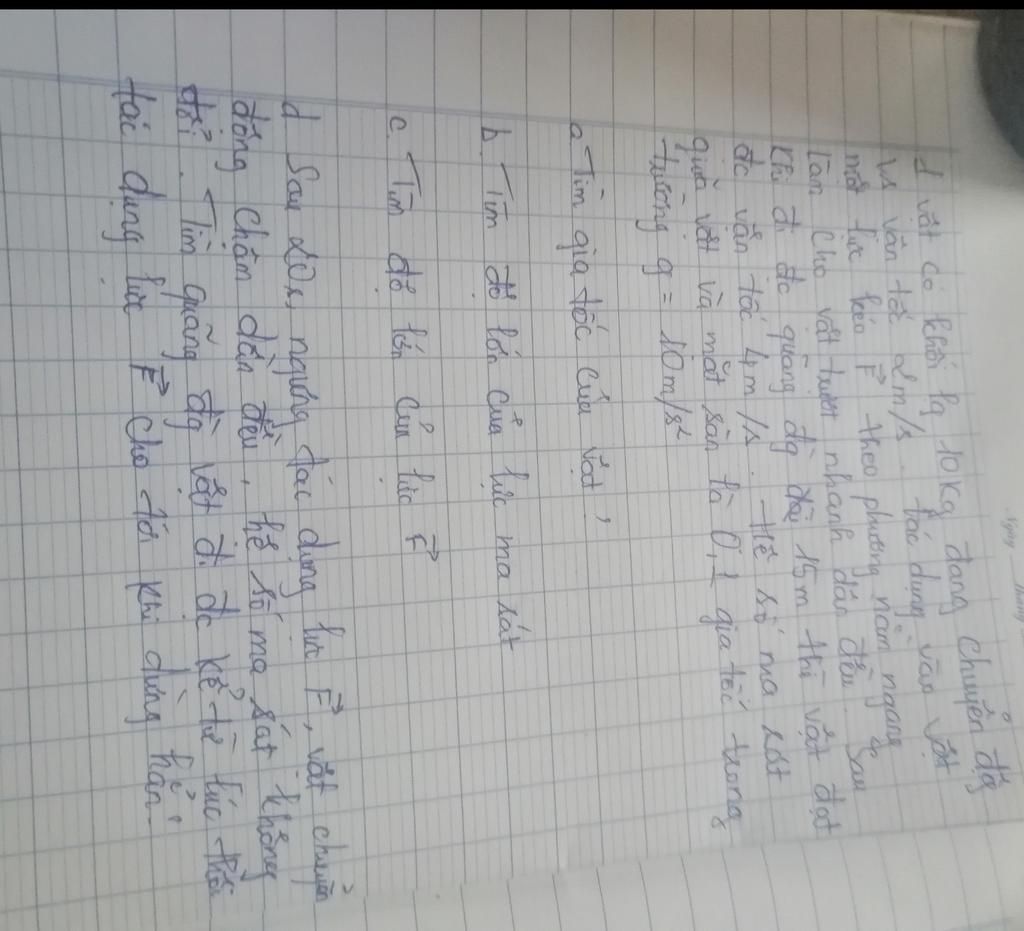 1 vật có khối lg 10kg đang chuyển độg
vs vận tốc 2m/s. tác dụng vào vật
một lực kéo F theo phương nằm ngang
làm cho vật trượt nhanh dần đều. Sau
khi đi đc quãng đg dài 15m thì vật đạt
đc vận tốc 4m/s. Hệ số ma sát
giữa vật và mặt sàn là 0,1 gia tốc trong
trường g = 10m/s²
a. Tìm gia tốc của vật
b. Tìm độ lớn của lực ma sát
c. Tìm độ lớn của lực F
d Sau 20s, ngừng tác dụng lực F, vật chuyển
động chậm dần đều, hệ số ma sát không
đổi. Tìm quãng đg vật đi đc kể từ lúc thôi
tác dụng lực F cho tới khi dừng hẳn.
Ngày